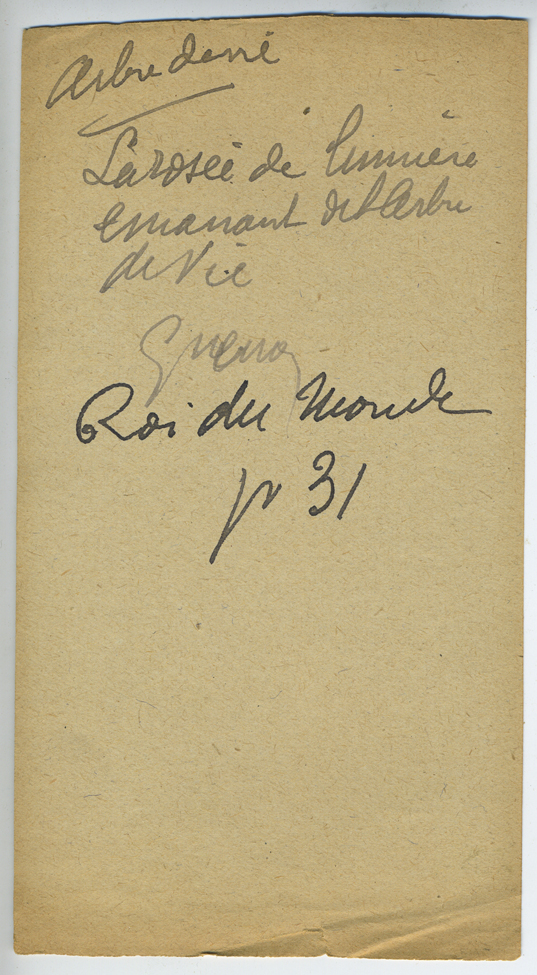 Arbre de vie
La rosée de lumière
emanant de l'Arbre
de Vie
Guenon
Roi du Monde
p 31